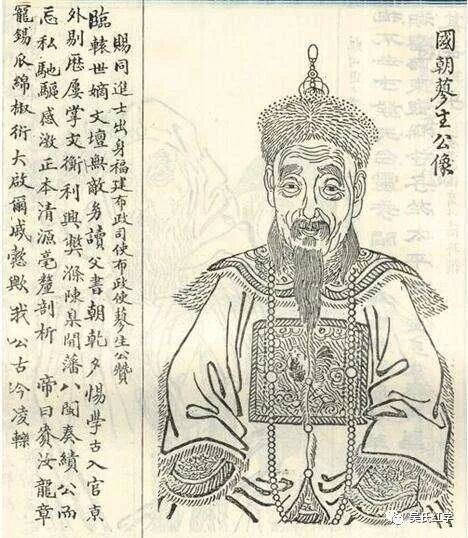 國朝蓼生公像
賜同進士出身福建布政司使布政使蓼生公贊
臨轅世嫡文壇與敵讀父書朝乾夕惕學古入官京
外剔歷屢掌文衡利興弊滌陳臬開藩八閩奏績公而
忘私馳驅感激正本清源毫釐剖析 帝曰賚汝龍章
寵錫瓜綿椒衍大啟爾戚懿歟我公古今凌轢
吴氏红学